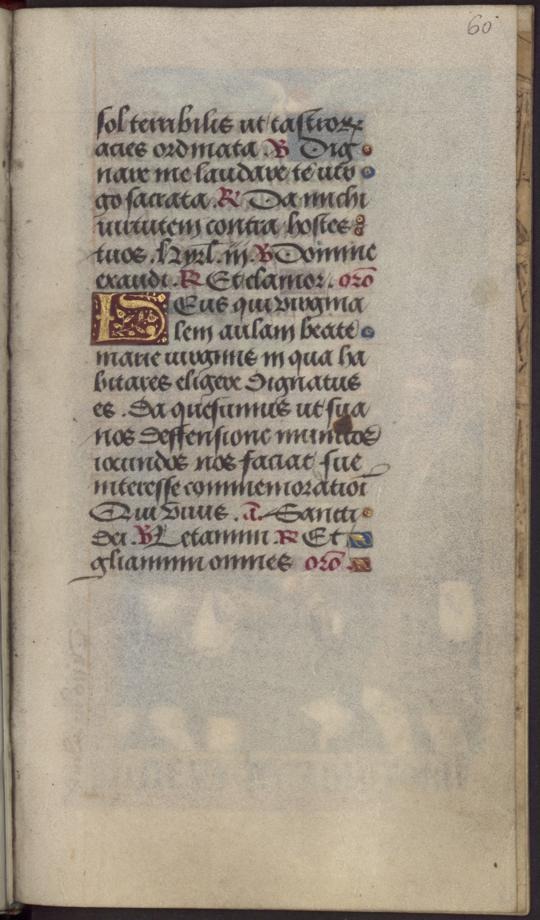 60
sol terribilis ut castrorꝝ
acies ordinata ℣ Dig
nare me laudare te uir
go sacrata . ℟ Da michi
uirtutem contra hostes
tuos . kyrl. iii. ℣ Domine
exaudi . ℟ Et clamor . orõ
DEus qui virgina
lem aulam beate
marie uirginis in qua ha
bitares eligere dignatus
es . Da quesumus ut sua
nos deffensione munitos
iocundos nos faciat sue
interesse commemoratioī
Qui viuis . ā. Sancti
dei . ℣ Letamini ℟ Et
gliamini omnes orõ